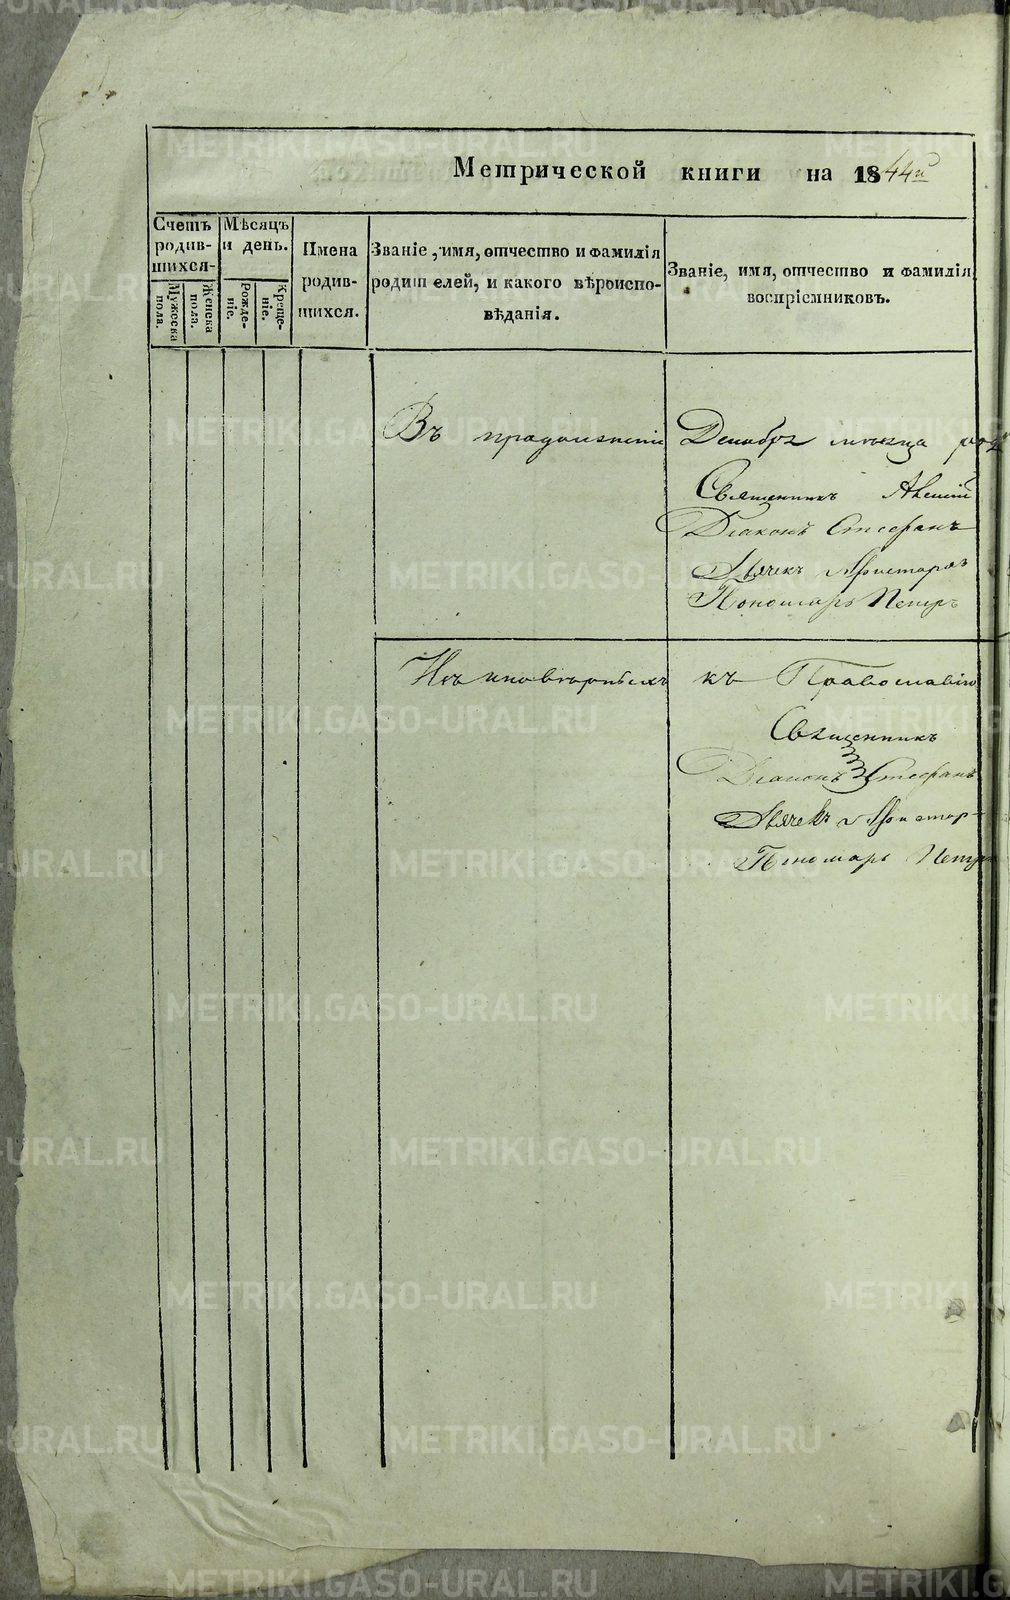 Метрической книги на 1844й
Счетъ родив- шихся.
Мѣсяцъ и день.
Мужеска пола.
Женска пола.
Рожде- ніе.
Креще- ніе.
Имена родив- шихся.
Званіе, имя, отчество и фамилія
родителей, и какого вѣроиспо-
вѣданія.
Званіе, имя, отчество и фамилія
воспріемниковъ.
Въ продолженіи Декабря мѣсяца
Священникъ
Діаконъ Стефанъ
Дьячекъ Аристархъ
Пономарь Петръ
Изъ иновѣрныхъ къ Православію
Священникъ
Діаконъ Стефанъ
Дьячекъ Аристар-
Пономарь Петръ
METRIKI.GASO-URAL.RU